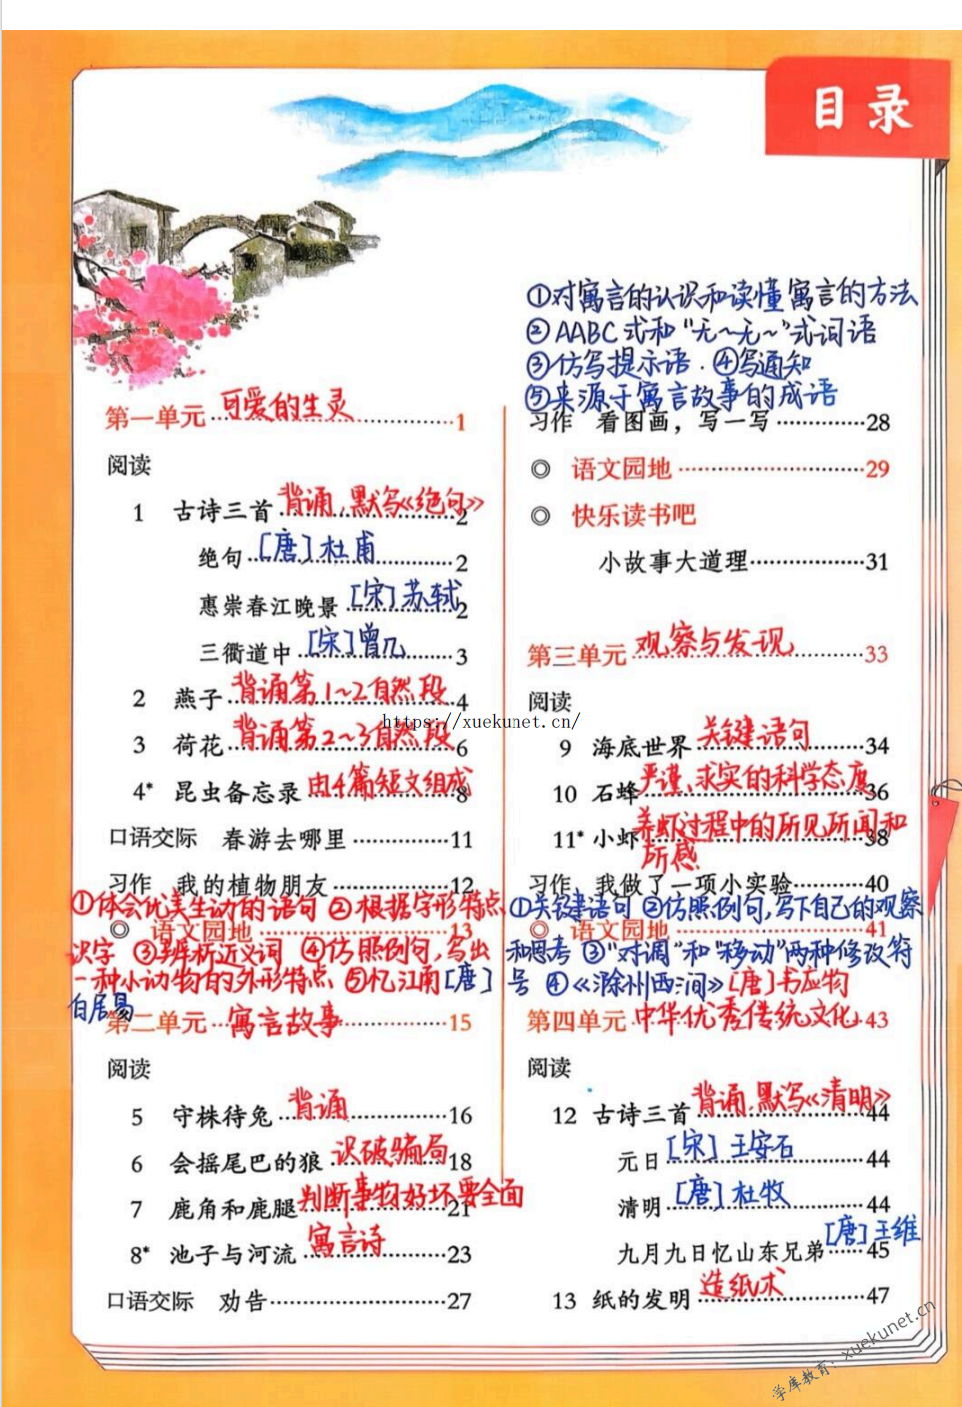 目录
第一单元 可爱的生灵 1
阅读
1 古诗三首 背诵、默写《绝句》 2
绝句 [唐]杜甫 2
惠崇春江晚景 [宋]苏轼 2
三衢道中 [宋]曾几 3
2 燕子 背诵第1~2自然段 4
https://xuekunet.cn/
3 荷花 背诵第2~3自然段 6
4* 昆虫备忘录 由4篇短文组成 8
口语交际 春游去哪里 11
习作 我的植物朋友 12
①体会优美生动的语句 ②根据字形特点
◎ 语文园地 13
识字 ③辨析近义词 ④仿照例句,写出
一种小动物的外形特点 ⑤忆江南[唐]
白居易
第二单元 寓言故事 15
阅读
5 守株待兔 背诵 16
6 会摇尾巴的狼 识破骗局 18
7 鹿角和鹿腿 判断事物好坏要全面 21
8* 池子与河流 寓言诗 23
口语交际 劝告 27
①对寓言的认识和读懂寓言的方法
②AABC式和“无~无~”式词语
③仿写提示语.④写通知
⑤来源于寓言故事的成语
习作 看图画，写一写 28
◎ 语文园地 29
◎ 快乐读书吧
小故事大道理 31
第三单元 观察与发现 33
阅读
9 海底世界 关键语句 34
10 石蜂 严谨、求实的科学态度 36
11* 小虾 养虾过程中的所见所闻和 38
所感
习作 我做了一项小实验 40
①关键语句 ②仿照例句,写下自己的观察
◎ 语文园地 41
和思考 ③“对调”和“移动”两种修改符
号 ④《滁州西涧》[唐]韦应物
第四单元 中华优秀传统文化 43
阅读
12 古诗三首 背诵、默写《清明》 44
元日 [宋]王安石 44
清明 [唐]杜牧 44
九月九日忆山东兄弟 [唐]王维 45
13 纸的发明 造纸术 47
学库教育：xuekunet.cn